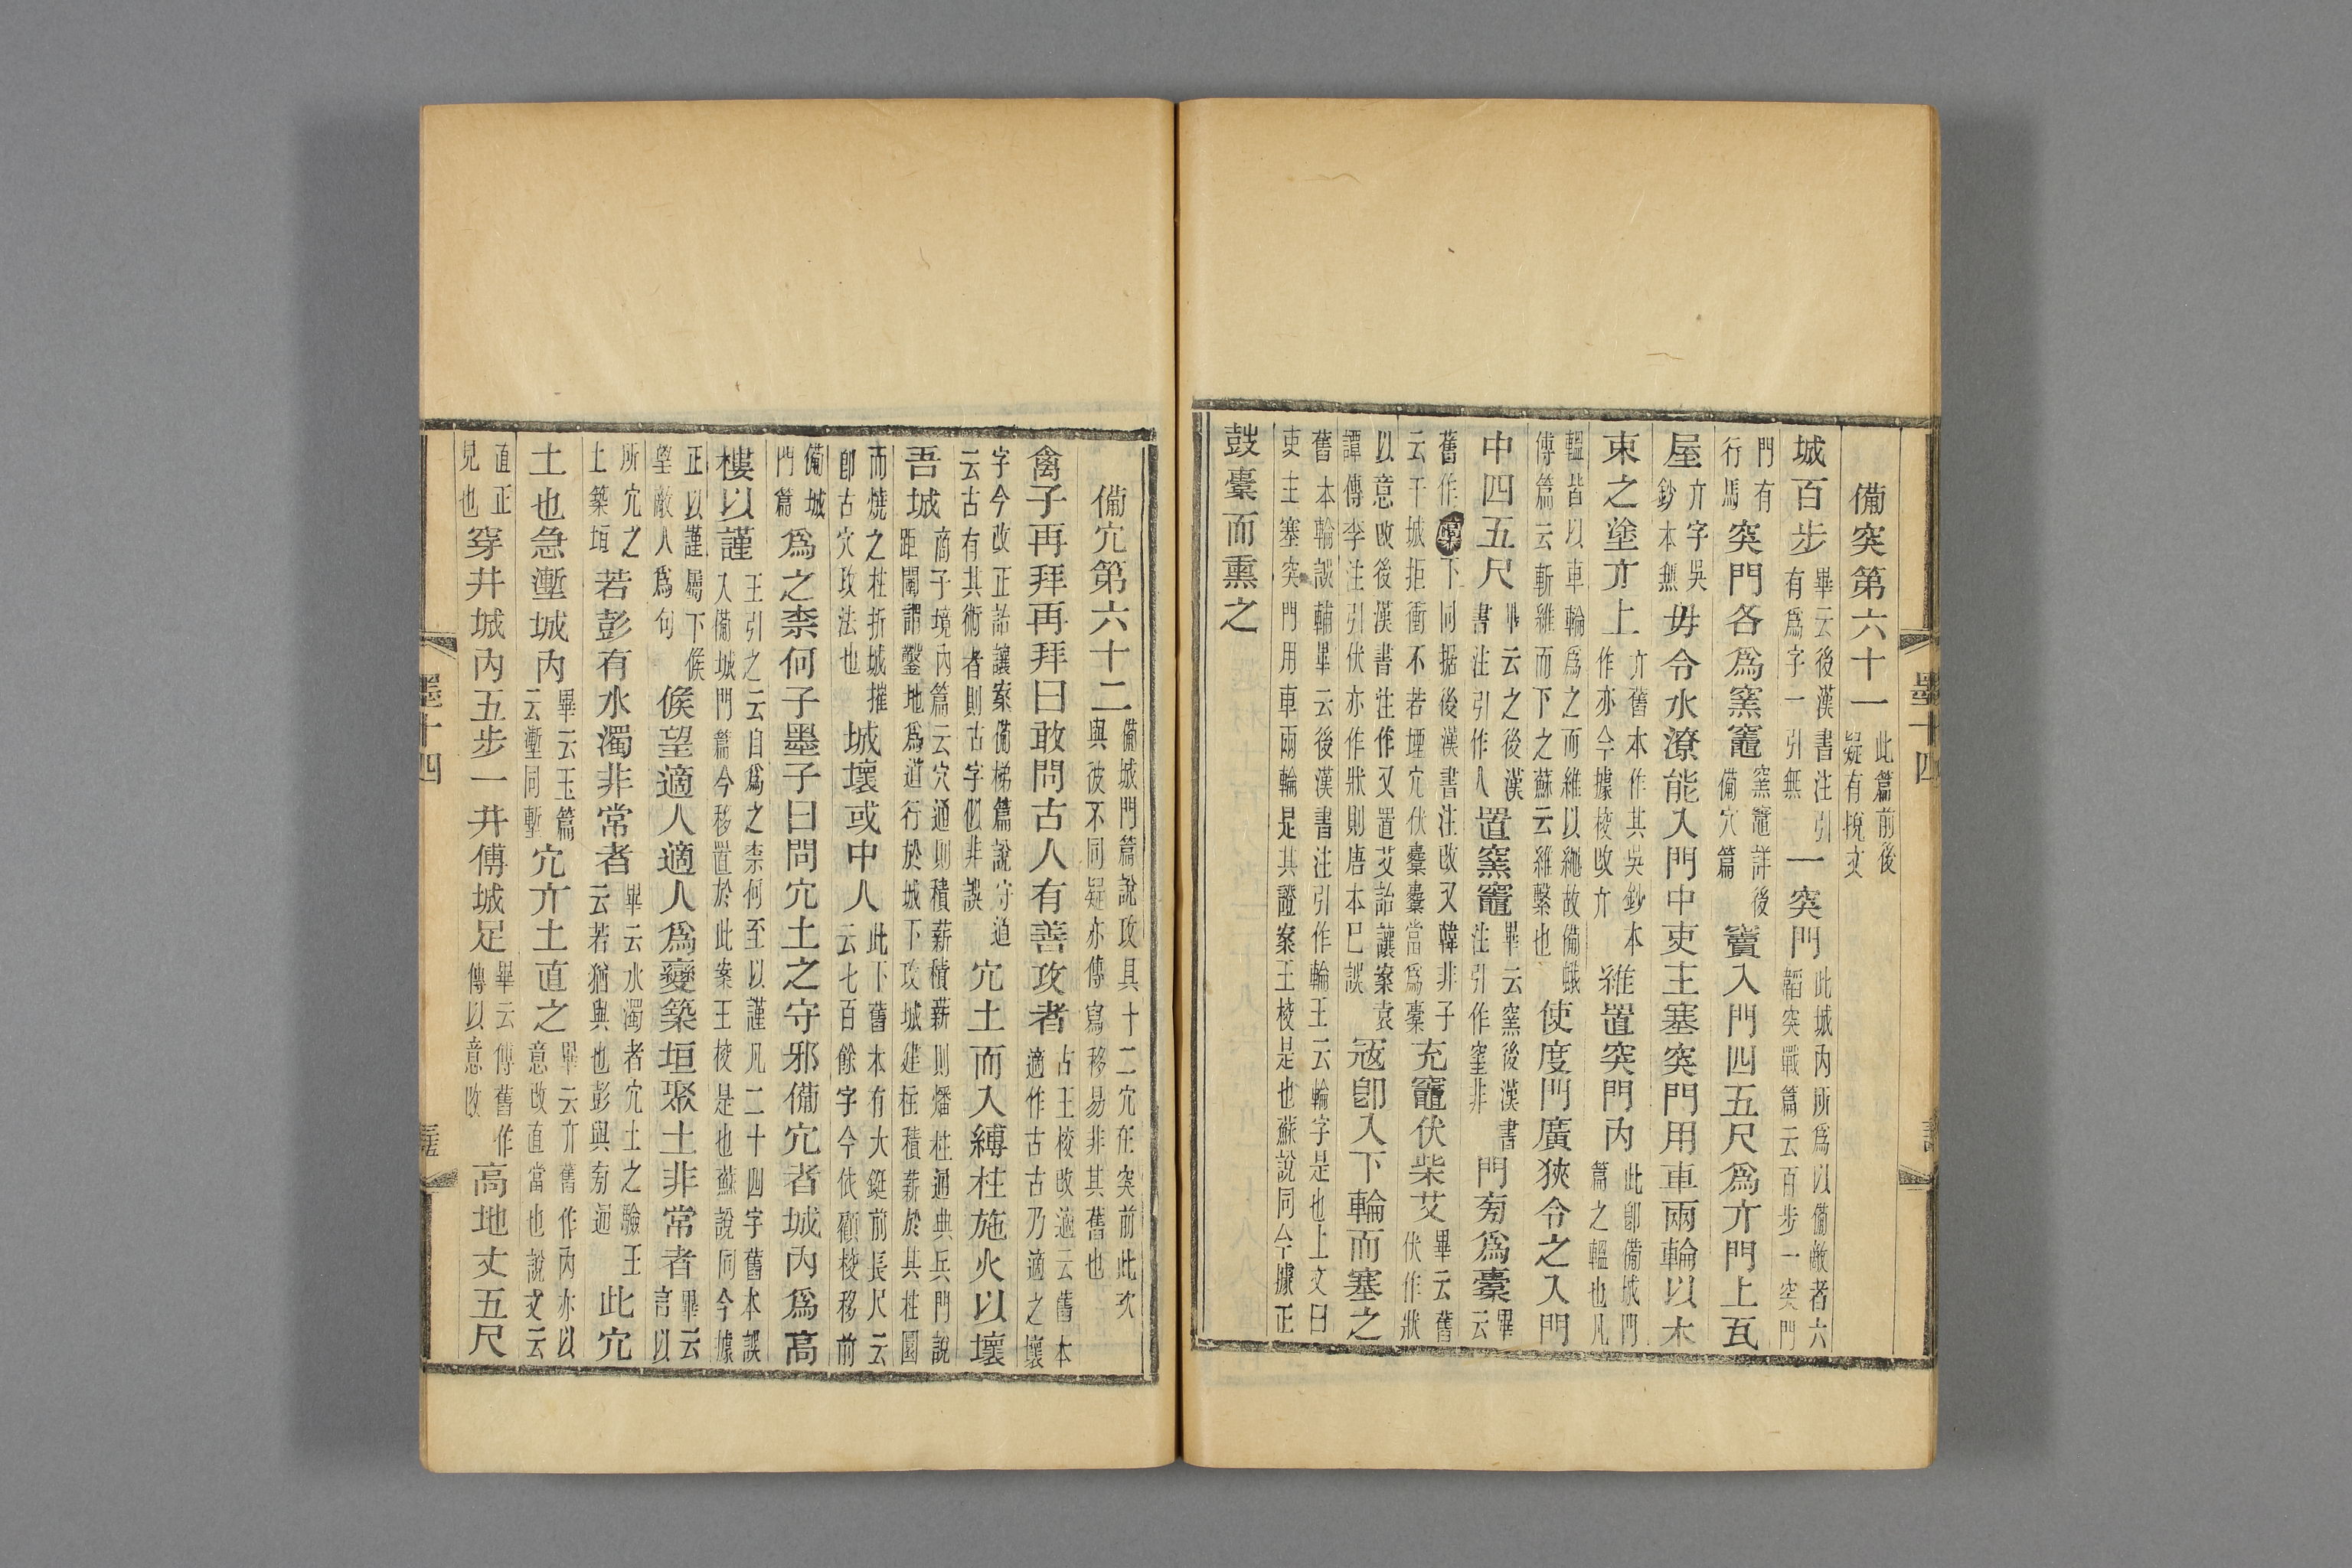 備突第六十一 此篇前後疑有挩文
城百步 畢云後漢書注引有爲字一引無 一突門 此城內所爲以備敵者六韜突戰篇云百步一突門
門有行馬 突門各爲窯竈 窯竈詳後備穴篇 竇入門四五尺爲亓門上瓦
屋 亓字吳鈔本無 毋令水潦能入門中吏主塞突門用車兩輪以木
束之塗亓上 亓舊本作其吳鈔本作亦今據校改亓 維置突門內 此卽備城門篇之轀也凡
轀皆以車輪爲之而維以繩故備蛾傅篇云斬維而下之蘇云維繫也 使度門廣狹令之入門
中四五尺 畢云之後漢書注引作人 置窯竈 畢云窯後漢書注引作窒非 門旁爲橐 畢云
舊作下同据後漢書注改又韓非子云干城拒衝不若堙穴伏橐橐當爲橐 充竈伏柴艾 畢云舊伏作狀
以意改後漢書注作又置艾詒讓案袁譚傳李注引伏亦作狀則唐本已誤 寇卽入下輪而塞之
舊本輪誤輔畢云後漢書注引作輪王云輪字是也上文曰吏主塞突門用車兩輪是其證案王校是也蘇說同今據正
鼓橐而熏之
墨十四
備穴第六十二 備城門篇說攻具十二穴在突前此次與彼不同疑亦傳寫移易非其舊也
禽子再拜再拜曰敢問古人有善攻者 古王校改適云舊本適作古古乃適之壞
字今改正詒讓案備梯篇說守道云古有其術者則古字似非誤 穴土而入縛柱施火以壞
吾城 商子境內篇云穴通則積薪積薪則燔柱通典兵門說距闉謂鑿地爲道行於城下攻城建柱積薪於其柱圜
而燒之柱折城摧卽古穴攻法也 城壞或中人 此下舊本有大鋌前長尺云云七百餘字今依顧校移前
備城門篇 爲之柰何子墨子曰問穴土之守邪備穴者城內爲高
樓以謹 王引之云自爲之柰何至以謹凡二十四字舊本誤入備城門篇今移置於此案王校是也蘇說同今據
正以謹屬下候望敵人爲句 候望適人適人爲變築垣聚土非常者 畢云言以
所穴之土築垣 若彭有水濁非常者 畢云水濁者穴土之驗王云若猶與也彭與旁通 此穴
土也急壍城內 畢云玉篇云壍同塹 穴亓土直之 畢云亓舊作內亦以意改直當也說文云
直正見也 穿井城內五步一井傅城足 畢云傅舊作傳以意改 高地丈五尺
墨十四